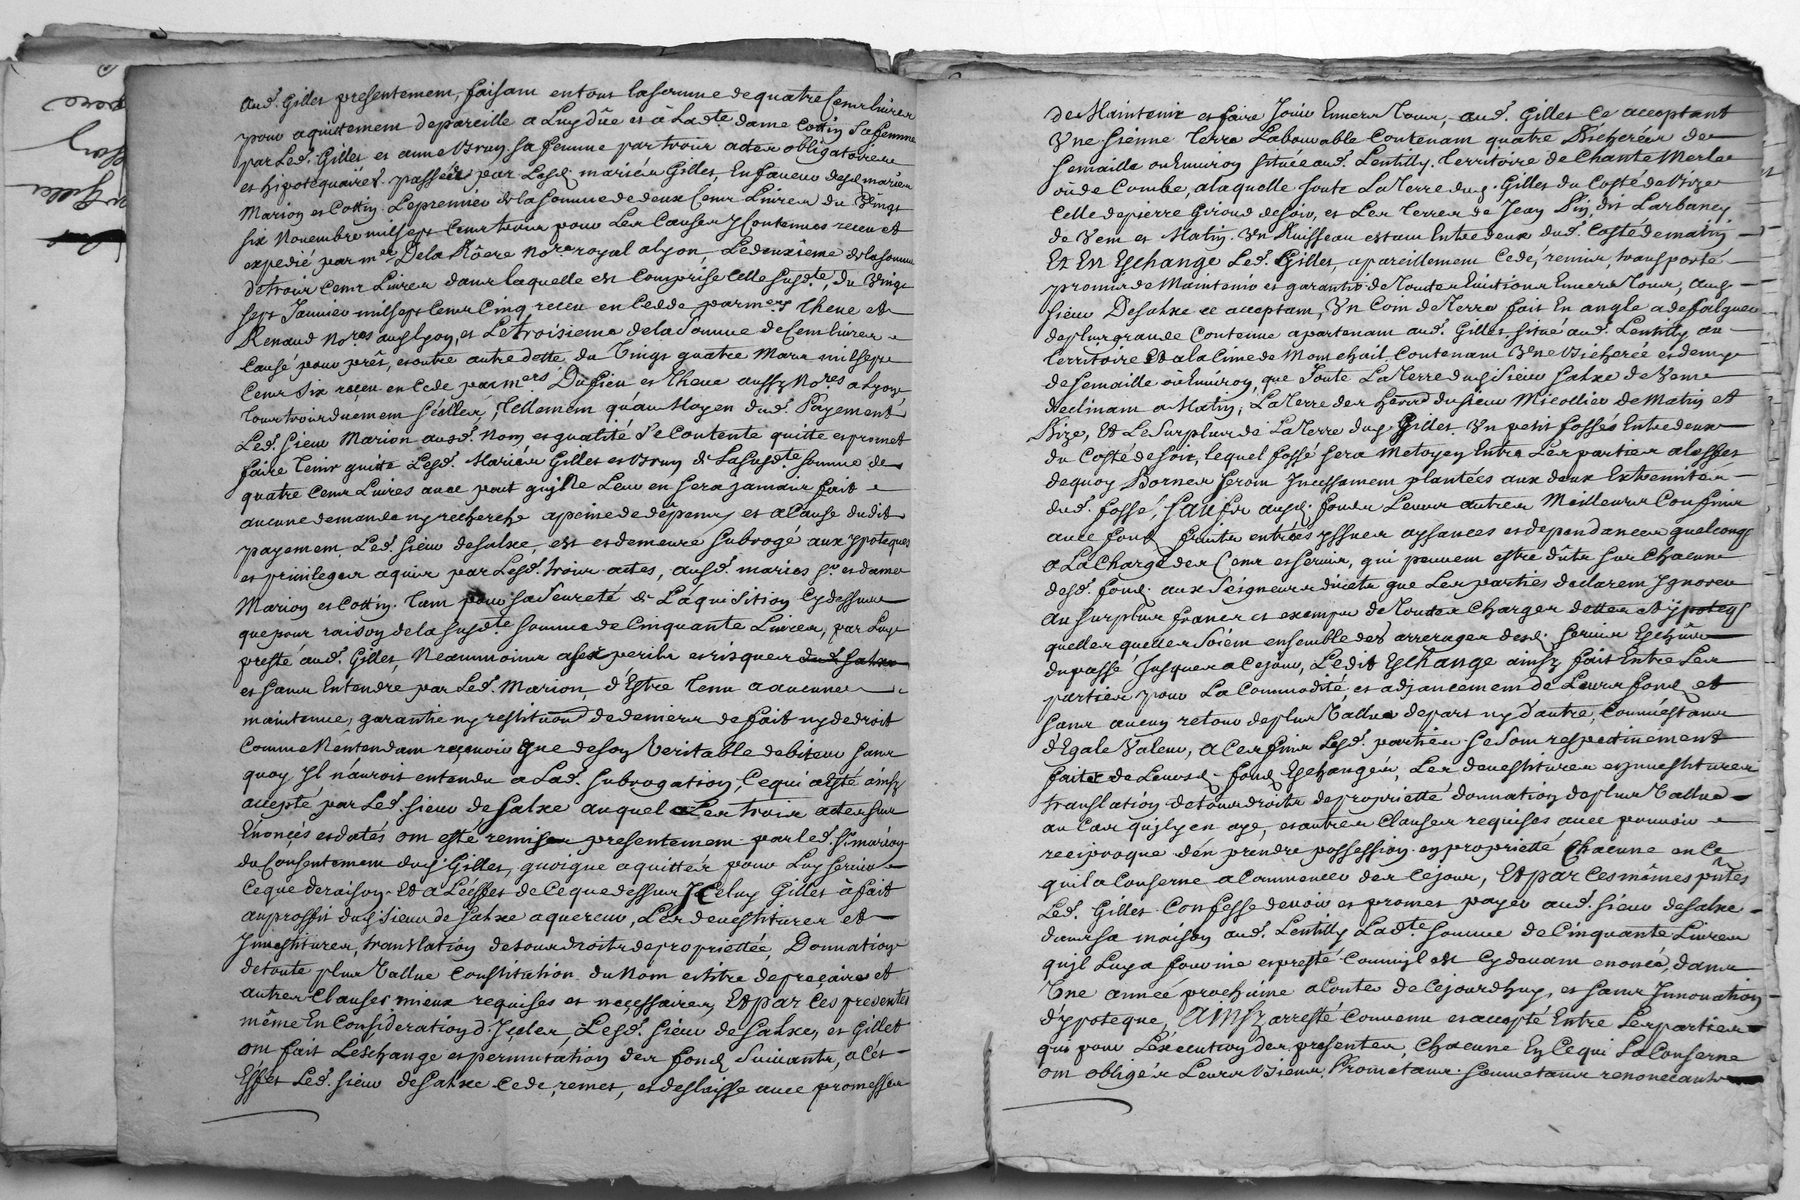 Aud. Gilles presentement, faisant en tout la somme de quatre cent livres
pour aquittement de pareille a Luy dûe et à Lad.te dame Cottin sa femme
par Led. Gilles et anne Brun sa femme par trois actes obligatoires
et hipotequaires passées par Lesd mariés Gilles, En faveur desd mariés
Marion et Cottin Le premier de la somme de deux Cent Livres du Vingt
six Novembre mil sept Cent trois pour Les Causes y Contenues receu et
expedié par m.e De la Roere No.re royal a Lyon, Le deuxième de la somme
de trois Cent Livres dans laquelle est Comprise Celle susd.te, du Vingt
sept Janvier mil sept Cent Cinq, receu en Cedde par m.es Theve et
Renaud No.res aud Lyon, et Le troisieme de la somme de Cent livres
Causé pour prêt, et outre autre dette du Vingt quatre Mars mil sept
Cent Six receu en Cede par m.ers Dufieu et Theve aussy No.res a Lyon
tous trois duement scéllés, tellement qu'au Moyen dud. Payement
Led. Sieur Marion aud. Nom et qualité se Contente quitte et promet
faire tenir quitte Lesd. Mariés Gilles et Brun de La susd.te somme de
quatre Cent Livres avec pact qu'jl ne Leur en sera jamais fait
aucune demande ny recherche a peine de dêpens, et a Cause dudit
payement Led. Sieur de Salxe, est et demeure subrogé aux ypoteques
et privileges aquis par Lesd. trois actes, ausd. mariés S.r et dame
Marion et Cottin. tant pour sa Seureté de L'aquisition Cy dessus
que pour raison de la susd.te somme de Cinquante Livres, par Luy
presté aud. Gilles, Neammoins a ses perils et risques dud. Salxe
et sans Entendre par Led. Marion, d'Estre tenu a aucune
maintenue, garantie ny restitution de deniers de fait ny de droit
Comme N'entendant reçevoir que de son Veritable debiteur sans
quoy Jl n'auroit entendu a Lad. subrogation, Ce qui a esté ainsy
accepté par Led. Sieur de Salxe auquel Les trois actes sus
Enonçés et datés ont esté remis presentement par led. S.r marion
du Consentement dud. Gilles, quoique aquittés pour Luy servir
Ce que de raison. Et a L'éffet de Ce que dessus JCeluy Gilles à fait
au proffit dud Sieur de Salxe aquereur, Les devestitures et
Jnvestitures, translation de tous droits de propriettée, Donnation
de toute plus Vallue Constitution du Nom et titre de preçaire et
autres Clauses mieux requises et neçessaires, Et par Ces presentes
même En Consideration d'Jçeles, Lesd. Sieur de Salxe, et Gilles
ont fait L'eschange et permutation des fond Suivants, a Cét
Effet Led. Sieur de Salxe Cede, remet, et deslaisse avec promesse
de Maintenir et faire Jouir Envers tous, aud. Gilles Ce acceptant
Vne sienne terre Labourable Contenant quatre Bicherées de
semaille ou Environ situèe aud. Lentilly. territoire de Chante Merle
où de Combe, a laquelle joute La terre dud. Gilles du Costé de Bize
Celle de pierre Giroud de soir, et Les terres de Jean Pin, dit Larbaney
de Vent et Matin Vn Ruisseau estant Entredeux dud. Costé de matin
Et En Eschange Led. Gilles, a pareillement Cede, remis, transporté
promis de Maintenir et garantir de toutes Evictions Envers tous, aud
Sieur De Salxe ce acceptant, Vn Coin de terre fait En angle a desalquer
de plus grande Contenue apartenant aud. Gilles situé aud. Lentilly au
territoire Et a la Cime de Mont chail, Contenant Vne Bicherée et demye
de semaille où Environ, que Joute La terre dud Sieur Salxe de Vent
declinant a Matin, La terre des hoirs du sieur Micollier de Matin et
Bize, Et Le Surplus de La terre dud. Gilles Vn petit fossés Entredeux
du Costé de soir, lequel fossé sera Metoyen Entre Les parties a leffet
de quoy Bornes seront Jncessament plantées aux deux Extremités
dud. fossé, SAUF Et ausd. fonds Leurs autres Meilleurs Confins
avec fond fruits entrées yssues aysances et dependances quelconqs
A La Charge des Cens et servis, qui peuvent estre dûts sur Chacune
desd. fond. aux Seigneurs directs que Les parties declarent Jgnorer
Au surplus francs et exempts de toutes Charges dettes et ypoteqs
quelles quelles Soient ensemble des arrerages desd. servis Eschûs
du passé Jusques a Cejour, Ledit Eschange ainsy fait Entre Les
parties pour La Commodité, et adjancement de Leurs fond et
sans aucun retour de plus Vallue de part ny d'autre, Comme estant
d'Egale Valeur, A Ces fins Lesd. parties se sont respectivement
faites de Leursd. fond Eschangés, Les devestitures et jnvestitures
translation de tous droits de propriettée donnation de plus Vallue
au Cas qu'jl y en aye, et autres Clauses requises avec pouvoir
reciproque d'en prendre possession en propriette Chacune en Ce
qui La Conserne a Commencer de Ce jour, Et par Ces mêmes pñtes
Led. Gilles Confesse devoir et promet payer aud. Sieur de Salxe
dans sa maison aud. Lentilly La d.te somme de Cinquante Livres
qu'jl Luy a fournie et presté Comme jl est Cy devant enoncé, dans
Vne année prochaine a Conter de Cejourdhuy, et sans Jnnovation
d'ypoteque, AinSy arresté Convenu et accepté Entre Les parties
qui pour L'execution des presentes, Chacune En Ce qui La Conserne
ont obligés Leurs Biens, Prometants soumetants renoncants